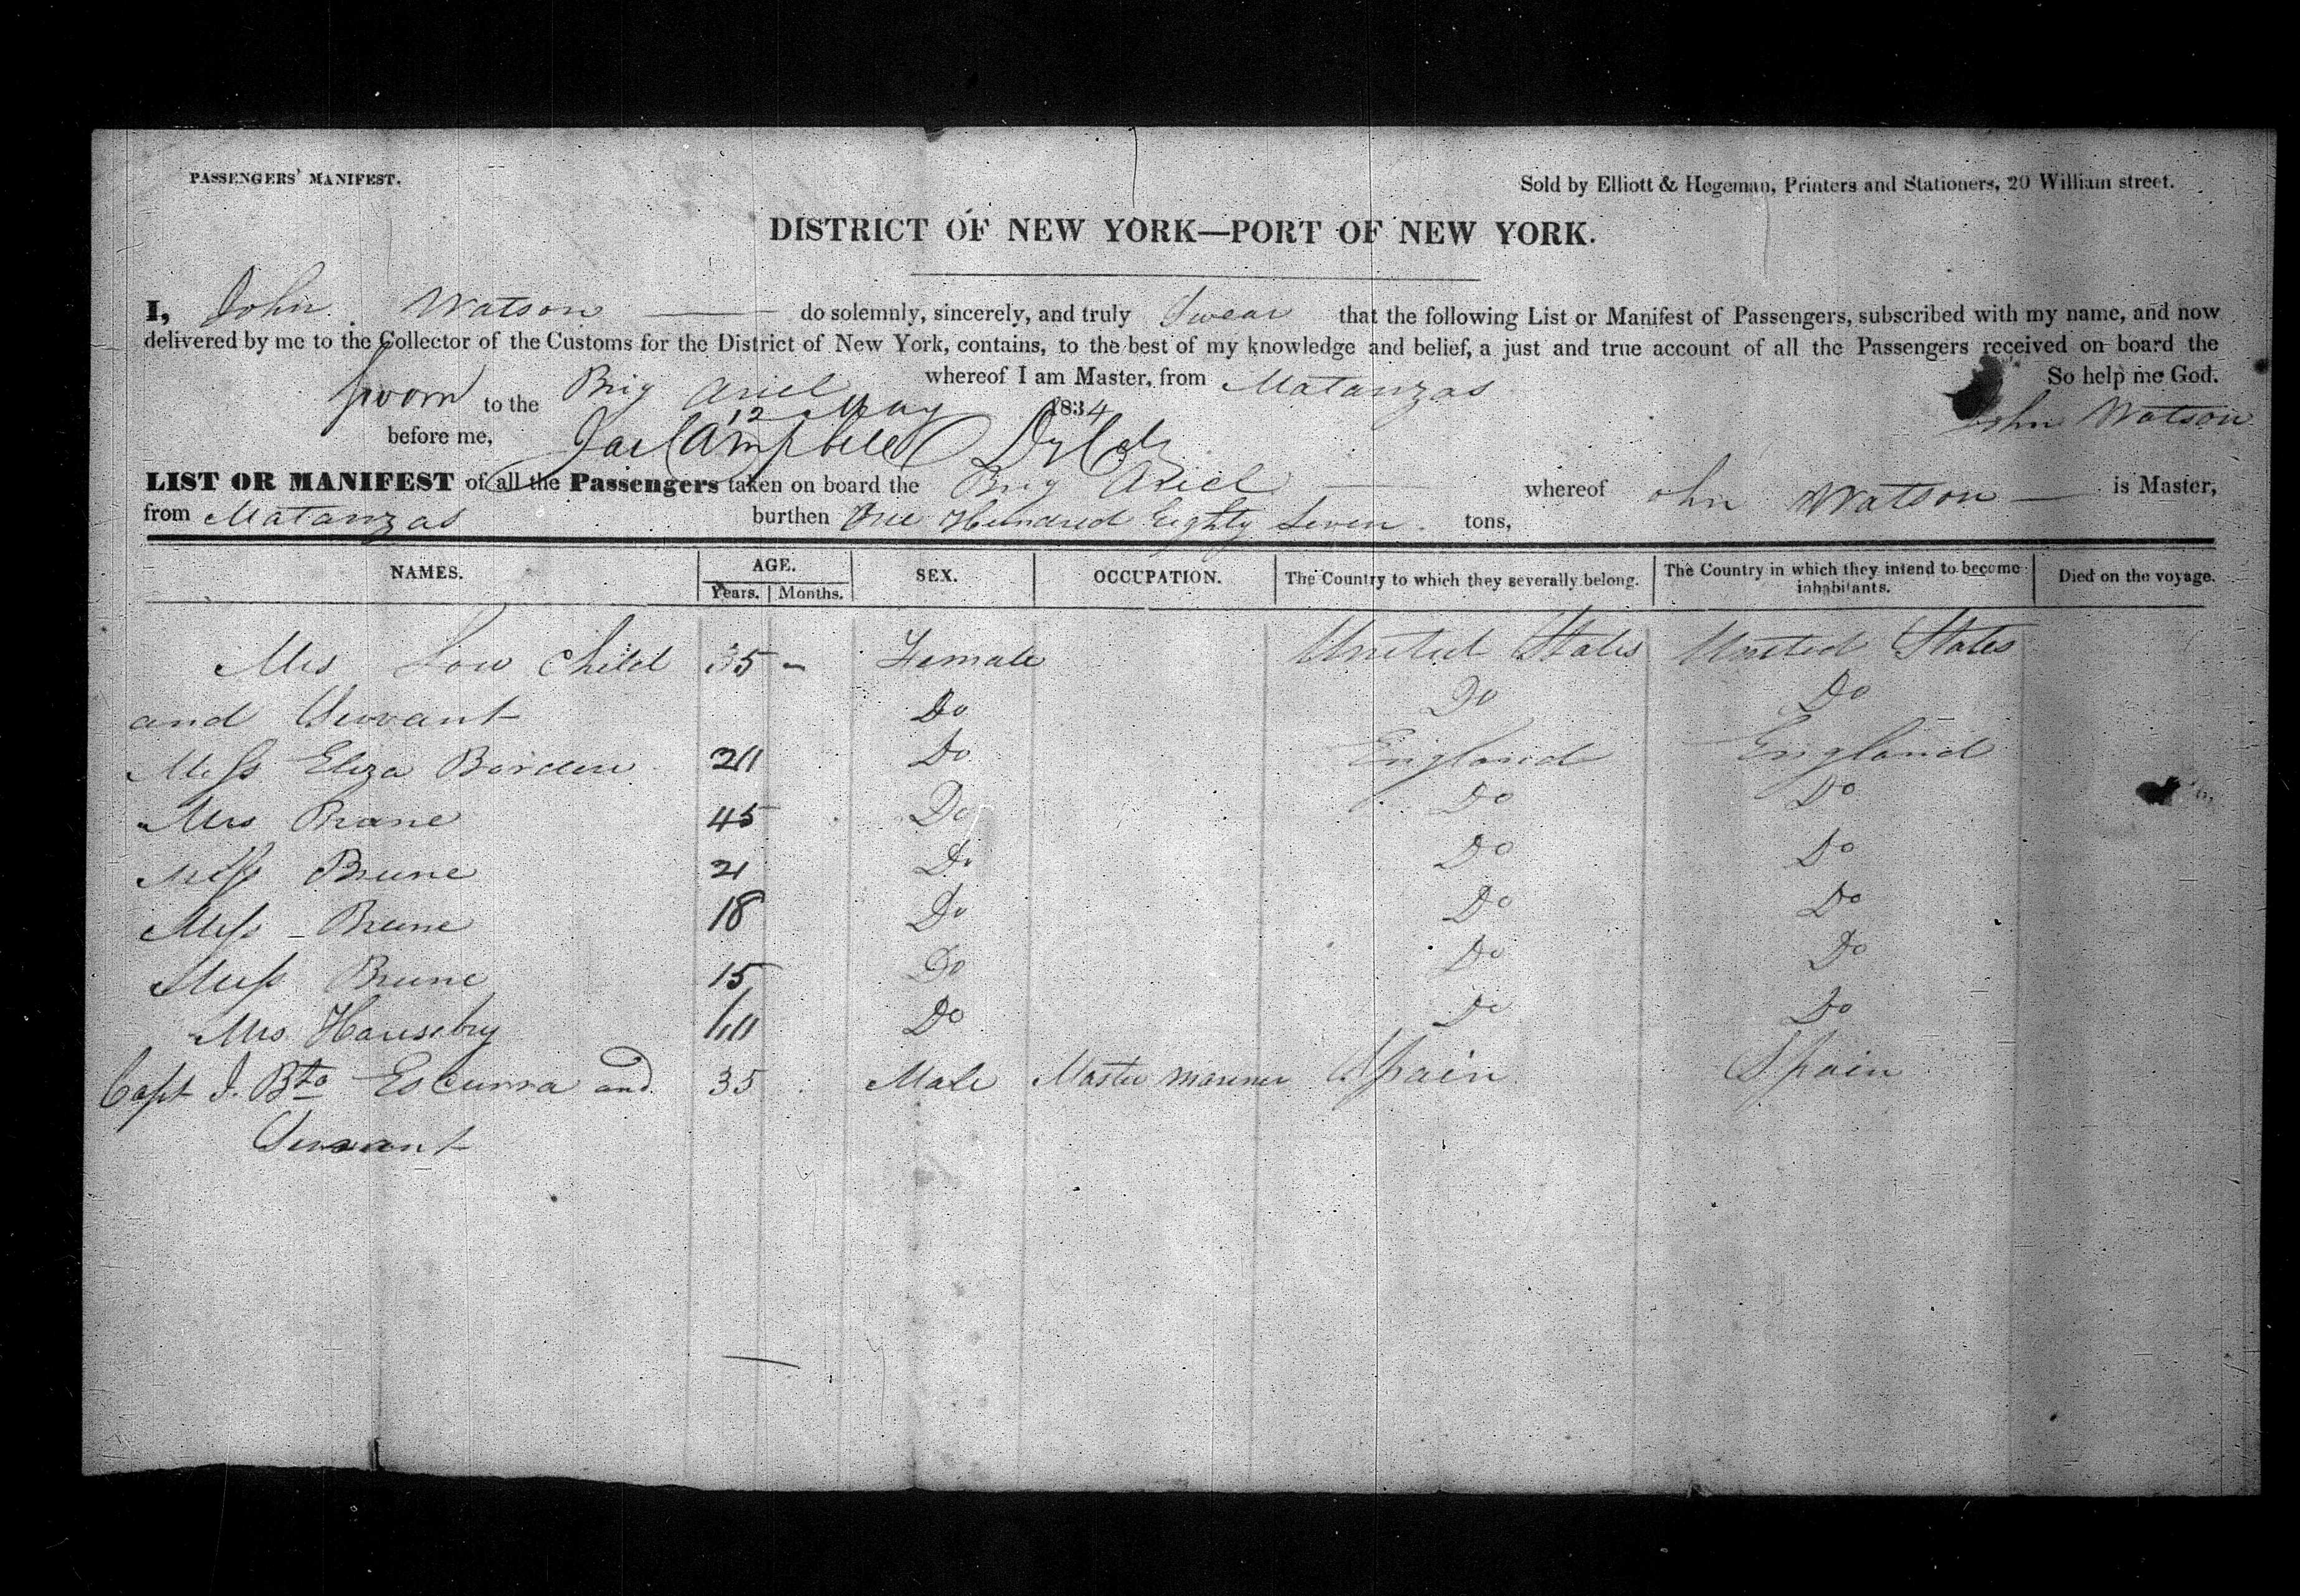 PASSENGERS' MANIFEST.
Sold by Elliott & Hegeman, Printers and Stationers, 20 William street.
DISTRICT OF NEW YORK—PORT OF NEW YORK.
I, John Watson do solemnly, sincerely, and truly Swear that the following List or Manifest of Passengers, subscribed with my name, and now
delivered by me to the Collector of the Customs for the District of New York, contains, to the best of my knowledge and belief, a just and true account of all the Passengers received on board the
Brig Ariel whereof I am Master, from Matanzas So help me God.
Sworn to the 12 May 1834 John Watson
before me, Campbell
LIST OR MANIFEST of all the Passengers taken on board the Brig Ariel whereof John Watson is Master,
from Matanzas burthen One Hundred Eighty Seven tons,
NAMES. AGE. Years. Months. SEX. OCCUPATION. The Country to which they severally belong. The Country in which they intend to become inhabitants. Died on the voyage.
Mrs Low Child 35 - Female United States United States
and Servant Do Do Do
Miss Eliza Borden Do England England
Mrs Brane 45 Do Do Do
Miss Brune 21 Do Do Do
Miss Brune 18 Do Do Do
Miss Brune 15 Do Do Do
Mrs Do Do Do
Capt J. Bta Escurra and 35 Male Master mariner Spain Spain
Servant